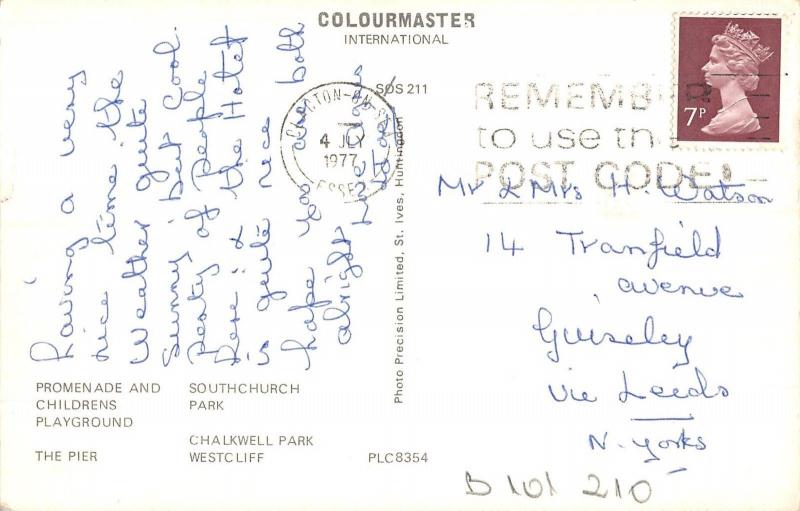 COLOURMASTER
INTERNATIONAL
SOS 211
Having a very
nice time. the
Weather quite
Sunny but Cool.
Penty of People
Here; & the Hotel
is quite nice
hope you are both
alright
CLACTON-ON-SEA
4 JLY
1977
ESSEX
REMEMBER
to use the
POST CODE!
7P
Mr & Mrs H. Watson
14 Tranfield
avenue
Guiseley
Via Leeds
N. Yorks
Photo Precision Limited, St. Ives, Huntingdon
PROMENADE AND
CHILDRENS
PLAYGROUND
THE PIER
SOUTHCHURCH
PARK
CHALKWELL PARK
WESTCLIFF
PLC8354
B 101 210